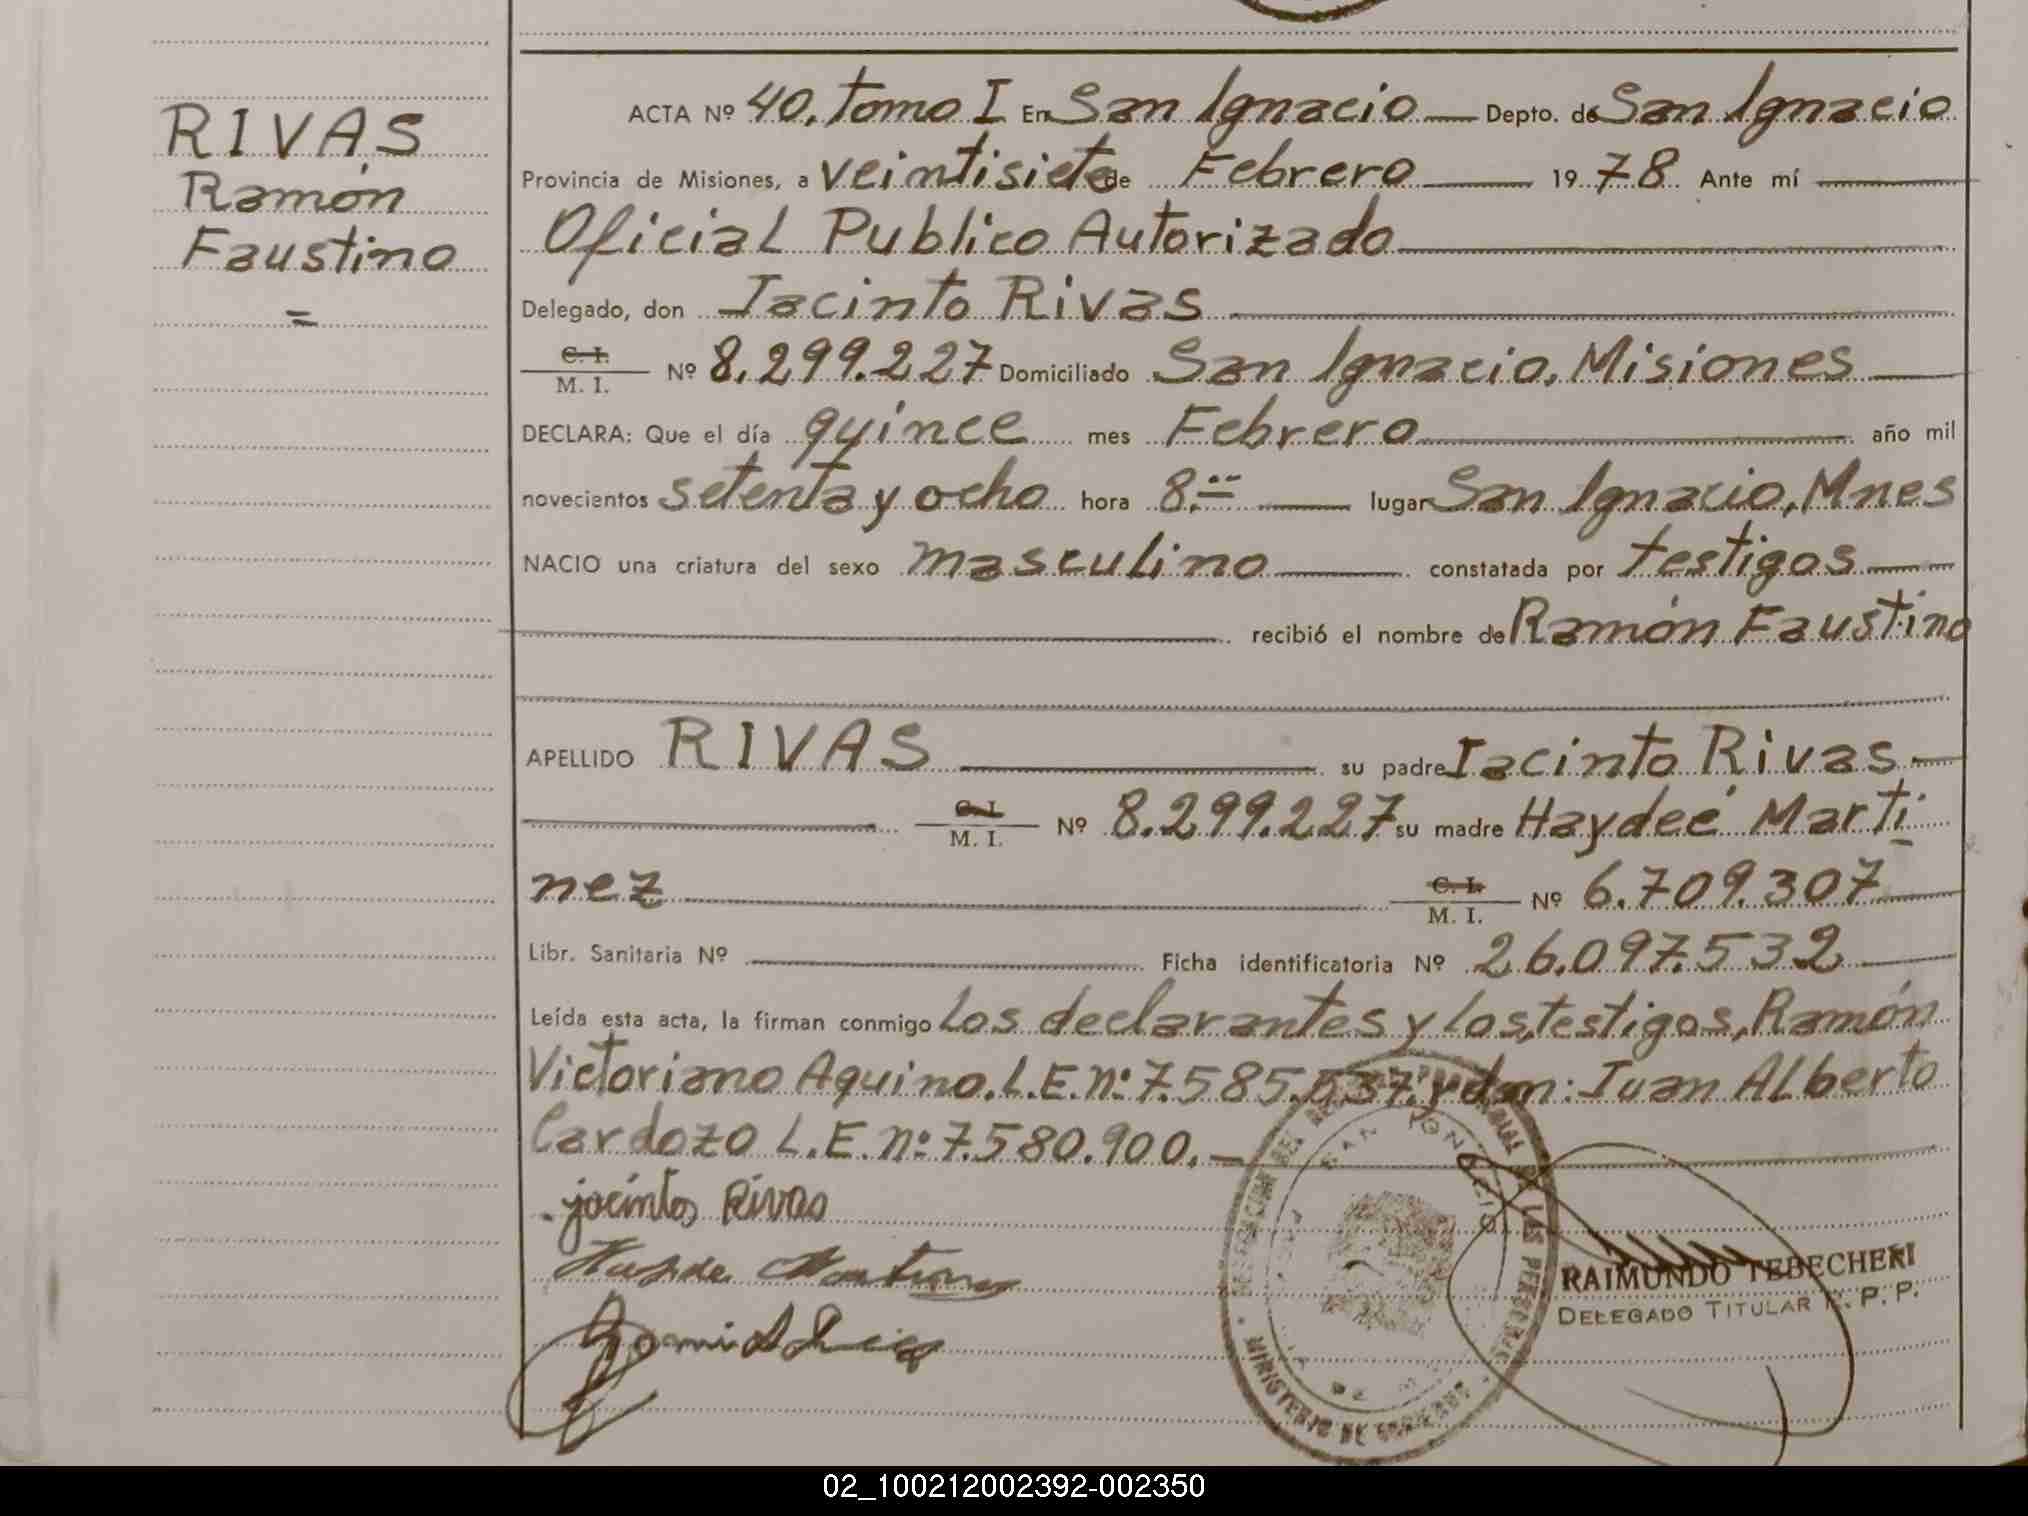 RIVAS
Ramón
Faustino
=
ACTA Nº 40, tomo I En San Ignacio Depto. de San Ignacio
Provincia de Misiones, a veintisiete de Febrero 1978 Ante mí
Oficial Publico Autorizado
Delegado, don Jacinto Rivas
C. I.
M. I. Nº 8.299.227 Domiciliado San Ignacio, Misiones
DECLARA: Que el día quince mes Febrero año mil
novecientos setenta y ocho hora 8.= lugar San Ignacio, Mnes
NACIO una criatura del sexo masculino constatada por testigos
recibió el nombre de Ramón Faustino
APELLIDO RIVAS su padre Jacinto Rivas
C. I.
M. I. Nº 8.299.227 su madre Haydeé Marti
nez C. I.
M. I. Nº 6.709.307
Libr. Sanitaria Nº Ficha identificatoria Nº 26.097.532
Leída esta acta, la firman conmigo los declarantes y los testigos, Ramón
Victoriano Aquino. L.E. nº: 7.585.537. y don: Juan Alberto
Cardozo L.E. nº: 7.580.900.-
jacintos Rivas
SAN IGNACIO
MINISTERIO DE GOBIERNO
RAIMUNDO TEBECHERI
DELEGADO TITULAR R. P. P.
02_100212002392-002350